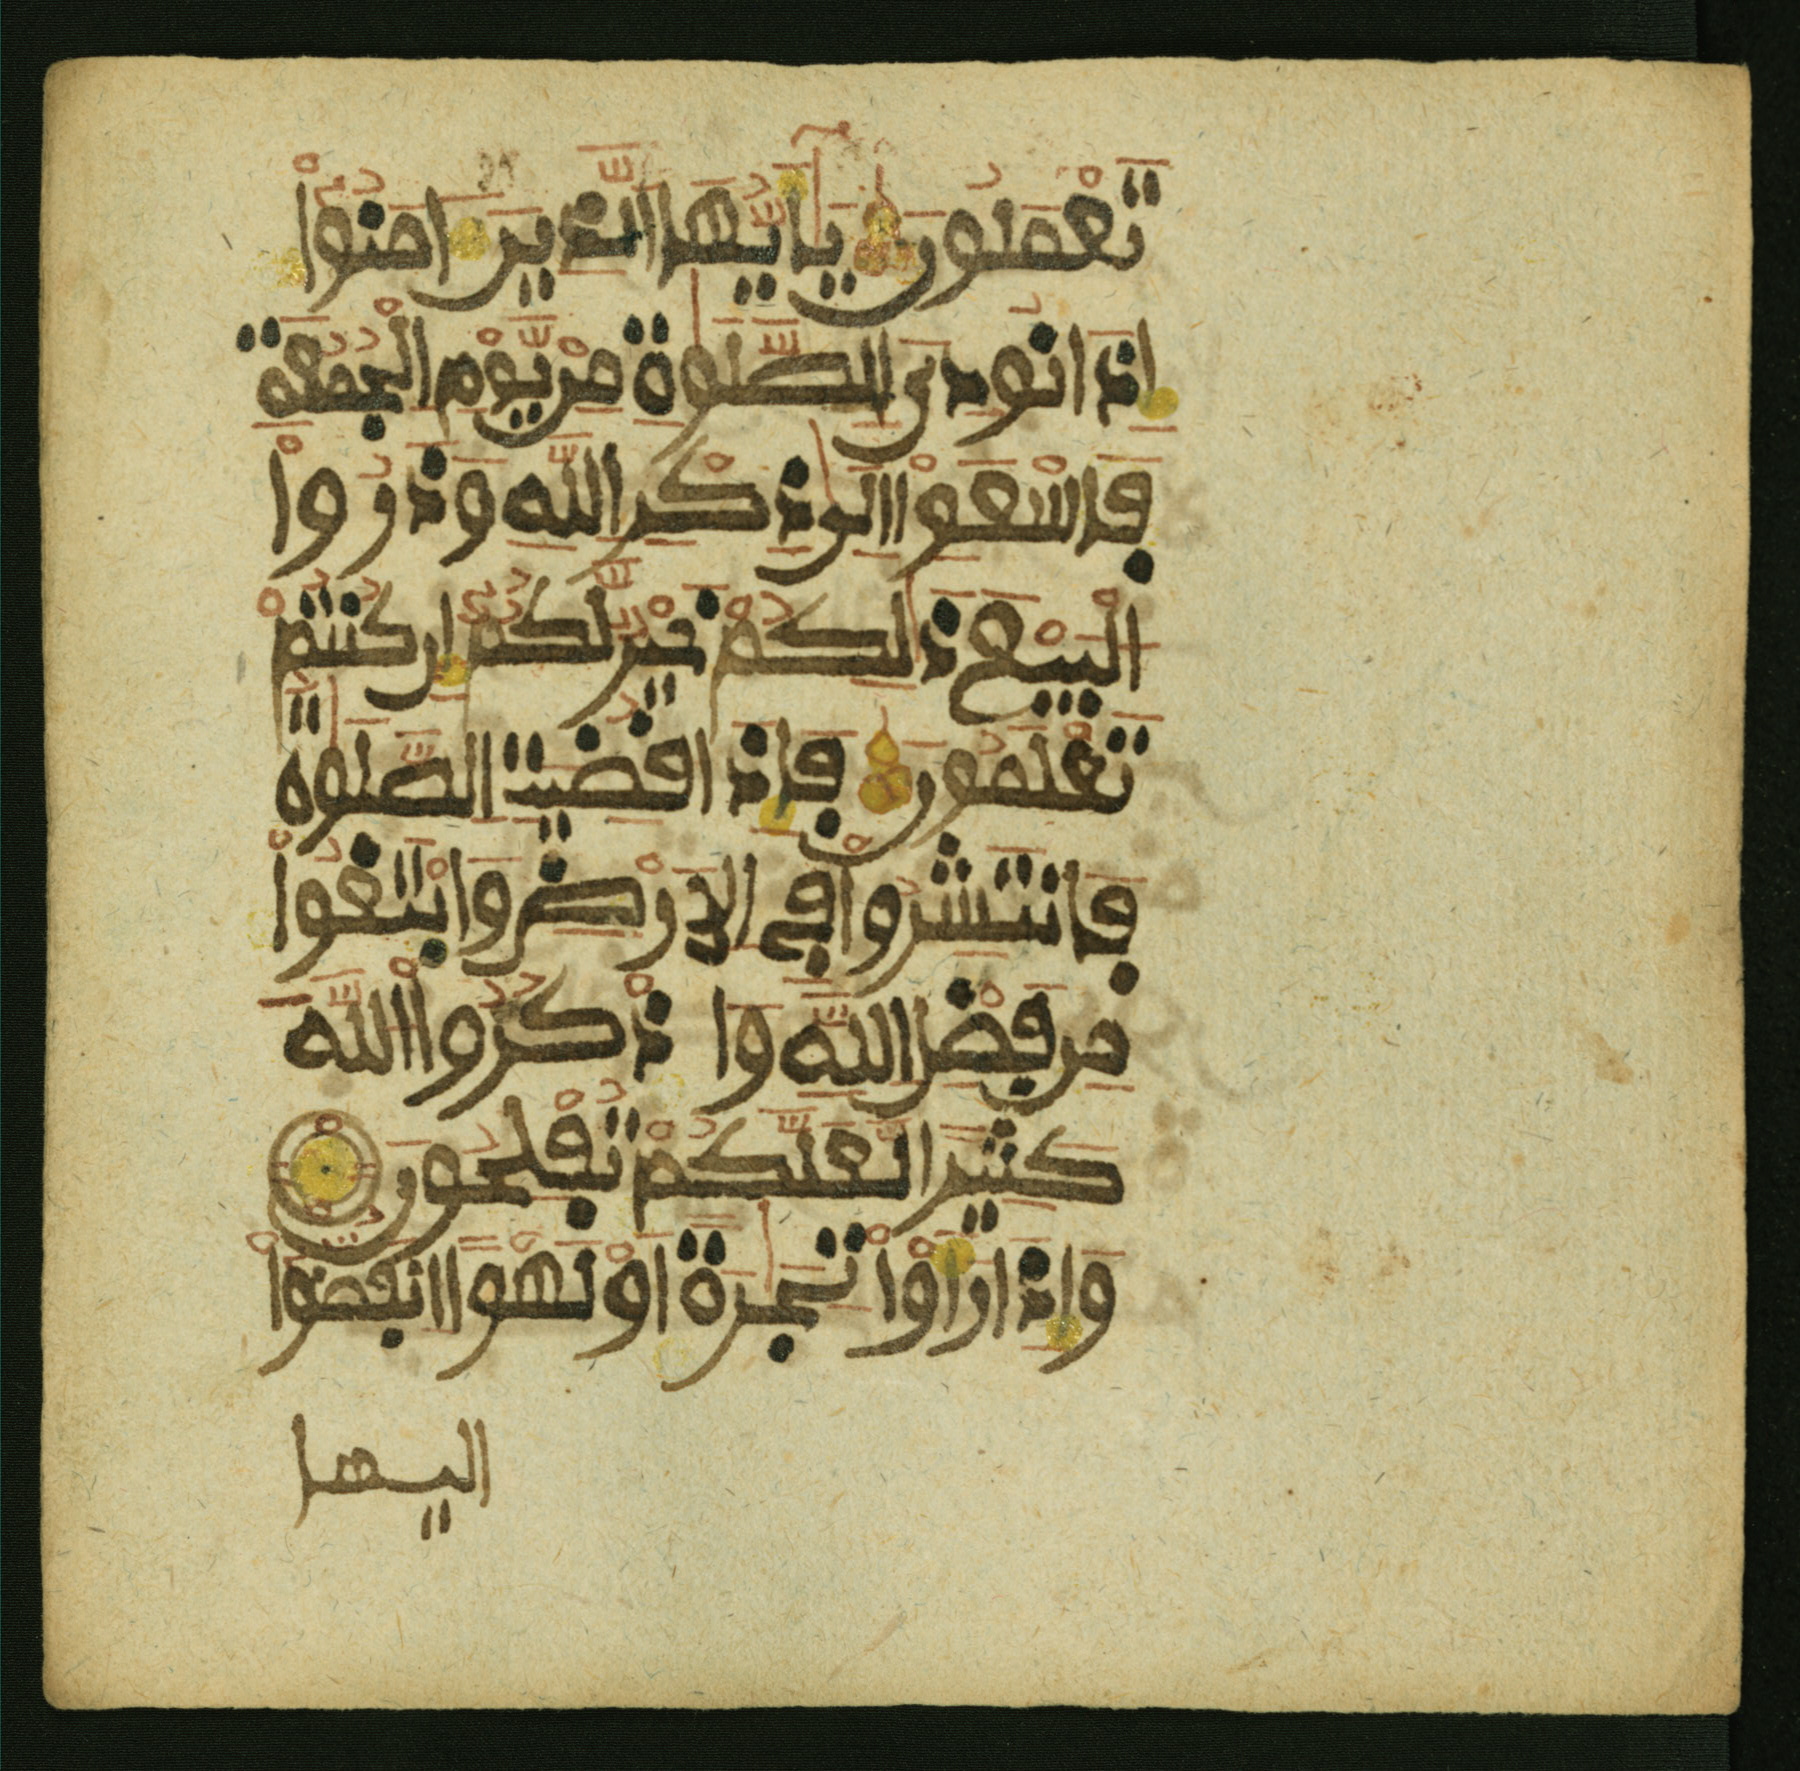 تَعْمَلُونَ يَٰأَيُّهَا الَّذِينَ ءَامَنُوٓاْ
إِذَا نُودِىَ لِلصَّلَوٰةِ مِنْ يَّوْمِ الْجُمُعَةِ
فَاسْعَوْاْ إِلَىٰ ذِكْرِ اللَّهِ وَذَرُواْ
الْبَيْعَ ذَٰلِكُمْ خَيْرٌ لَّكُمُۥٓ إِن كُنتُمْ
تَعْلَمُونَ فَإِذَا قُضِيَتِ الصَّلَوٰةُ
فَانتَشِرُواْ فِى الَارْضِ وَابْتَغُواْ
مِن فَضْلِ اللَّهِ وَاذْكُرُواْ اللَّهَ
كَثِيرًا لَّعَلَّكُمْ تُفْلِحُونَ
وَإِذَا رَأَوْاْ تِجَٰرَةً اَوْ لَهْوًا انفَضُّوٓاْ
اليها